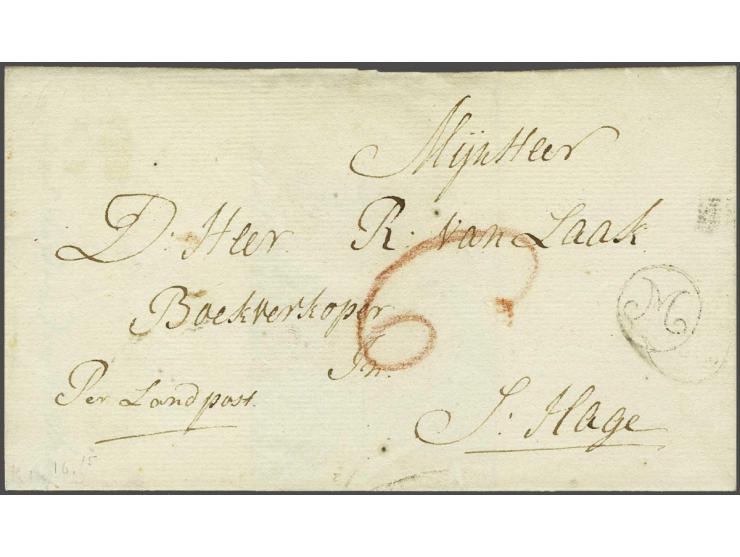 Mijn Heer
D. Heer R. van Laak
Boekverkoper
In.
S. Hage
Per Landpost.
6
M
16.15